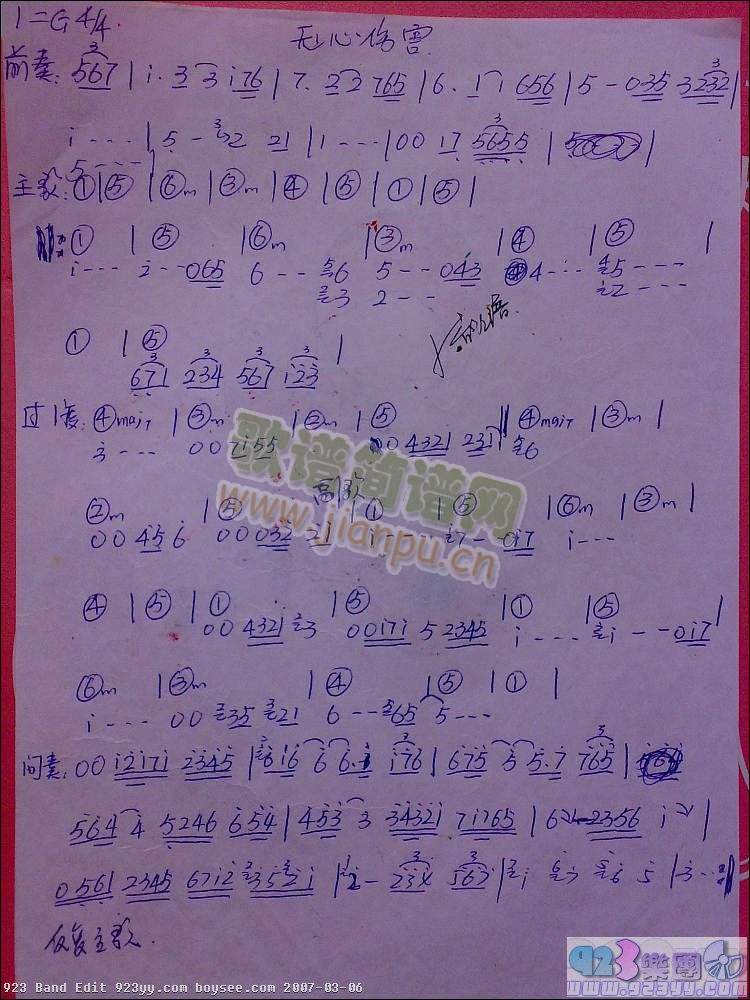 1=G 4/4
无心伤害
前奏: 567 | i. 3 3 i76 | 7. 2 2 765 | 6. 1 1 656 | 5 - 035 3232 |
i - - - | 5 - 32 21 | 1 - - - | 00 17 5655 |
5 - - -
主歌: ① | ⑤ | ⑥m | ③m | ④ | ⑤ | ① | ⑤ |
① | ⑤ | ⑥m | ③m | ④ | ⑤ |
i - - - 2 - - 065 6 - - 56 5 - - 043 4 - - - 45 - - -
23 2 - - i2 - - -
① | ⑤ |
671 234 567 i23
过渡: ④maj7 | ③m | ②m | ⑤ || ④maj7 | ③m |
3 - - - 00 7i55 00 4321 231 56
②m | ⑤ 高歌 | ① | ⑤ | ⑥m | ③m |
00 45 6 00 032 21 i - - - i7 - - 0i7 i - - -
④ | ⑤ | ① | ⑤ | ① | ⑤ |
00 4321 23 00i7i 5 2345 i - - - 2i - - 0i7
⑥m | ③m | ④ | ⑤ | ① |
i - - - 00 235 221 6 - - 565 5 - - -
间奏: 00 i2i7i 2345 | 6i6 6 6. i i76 | 675 5 5.7 765 |
564 4 5246 654 | 453 3 34321 7i765 | 6 2356 i |
0561 2345 67i2 35 2i | 2 - 234 567 | 2i 57 56 5 | 3 - -
反复主歌.
歌谱简谱网
www.jianpu.cn
923樂團
www.923yy.com
923 Band Edit 923yy.com boysee.com 2007-03-06